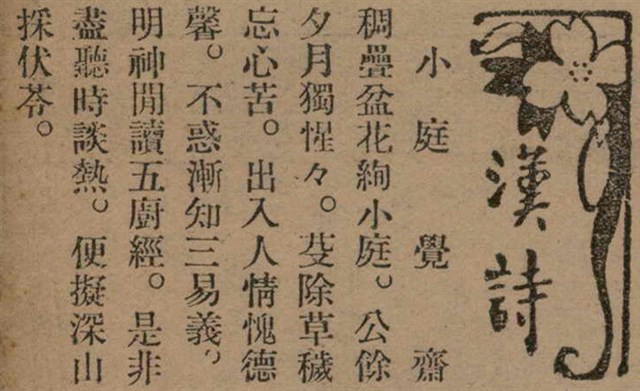 漢詩
小庭　覺齋
稠疊盆花絢小庭。公餘
夕月獨惺々。芟除草穢
忘心苦。出入人情愧德
馨。不惑漸知三易義。
明神閒讀五廚經。是非
盡聽時談熱。便擬深山
採伏苓。